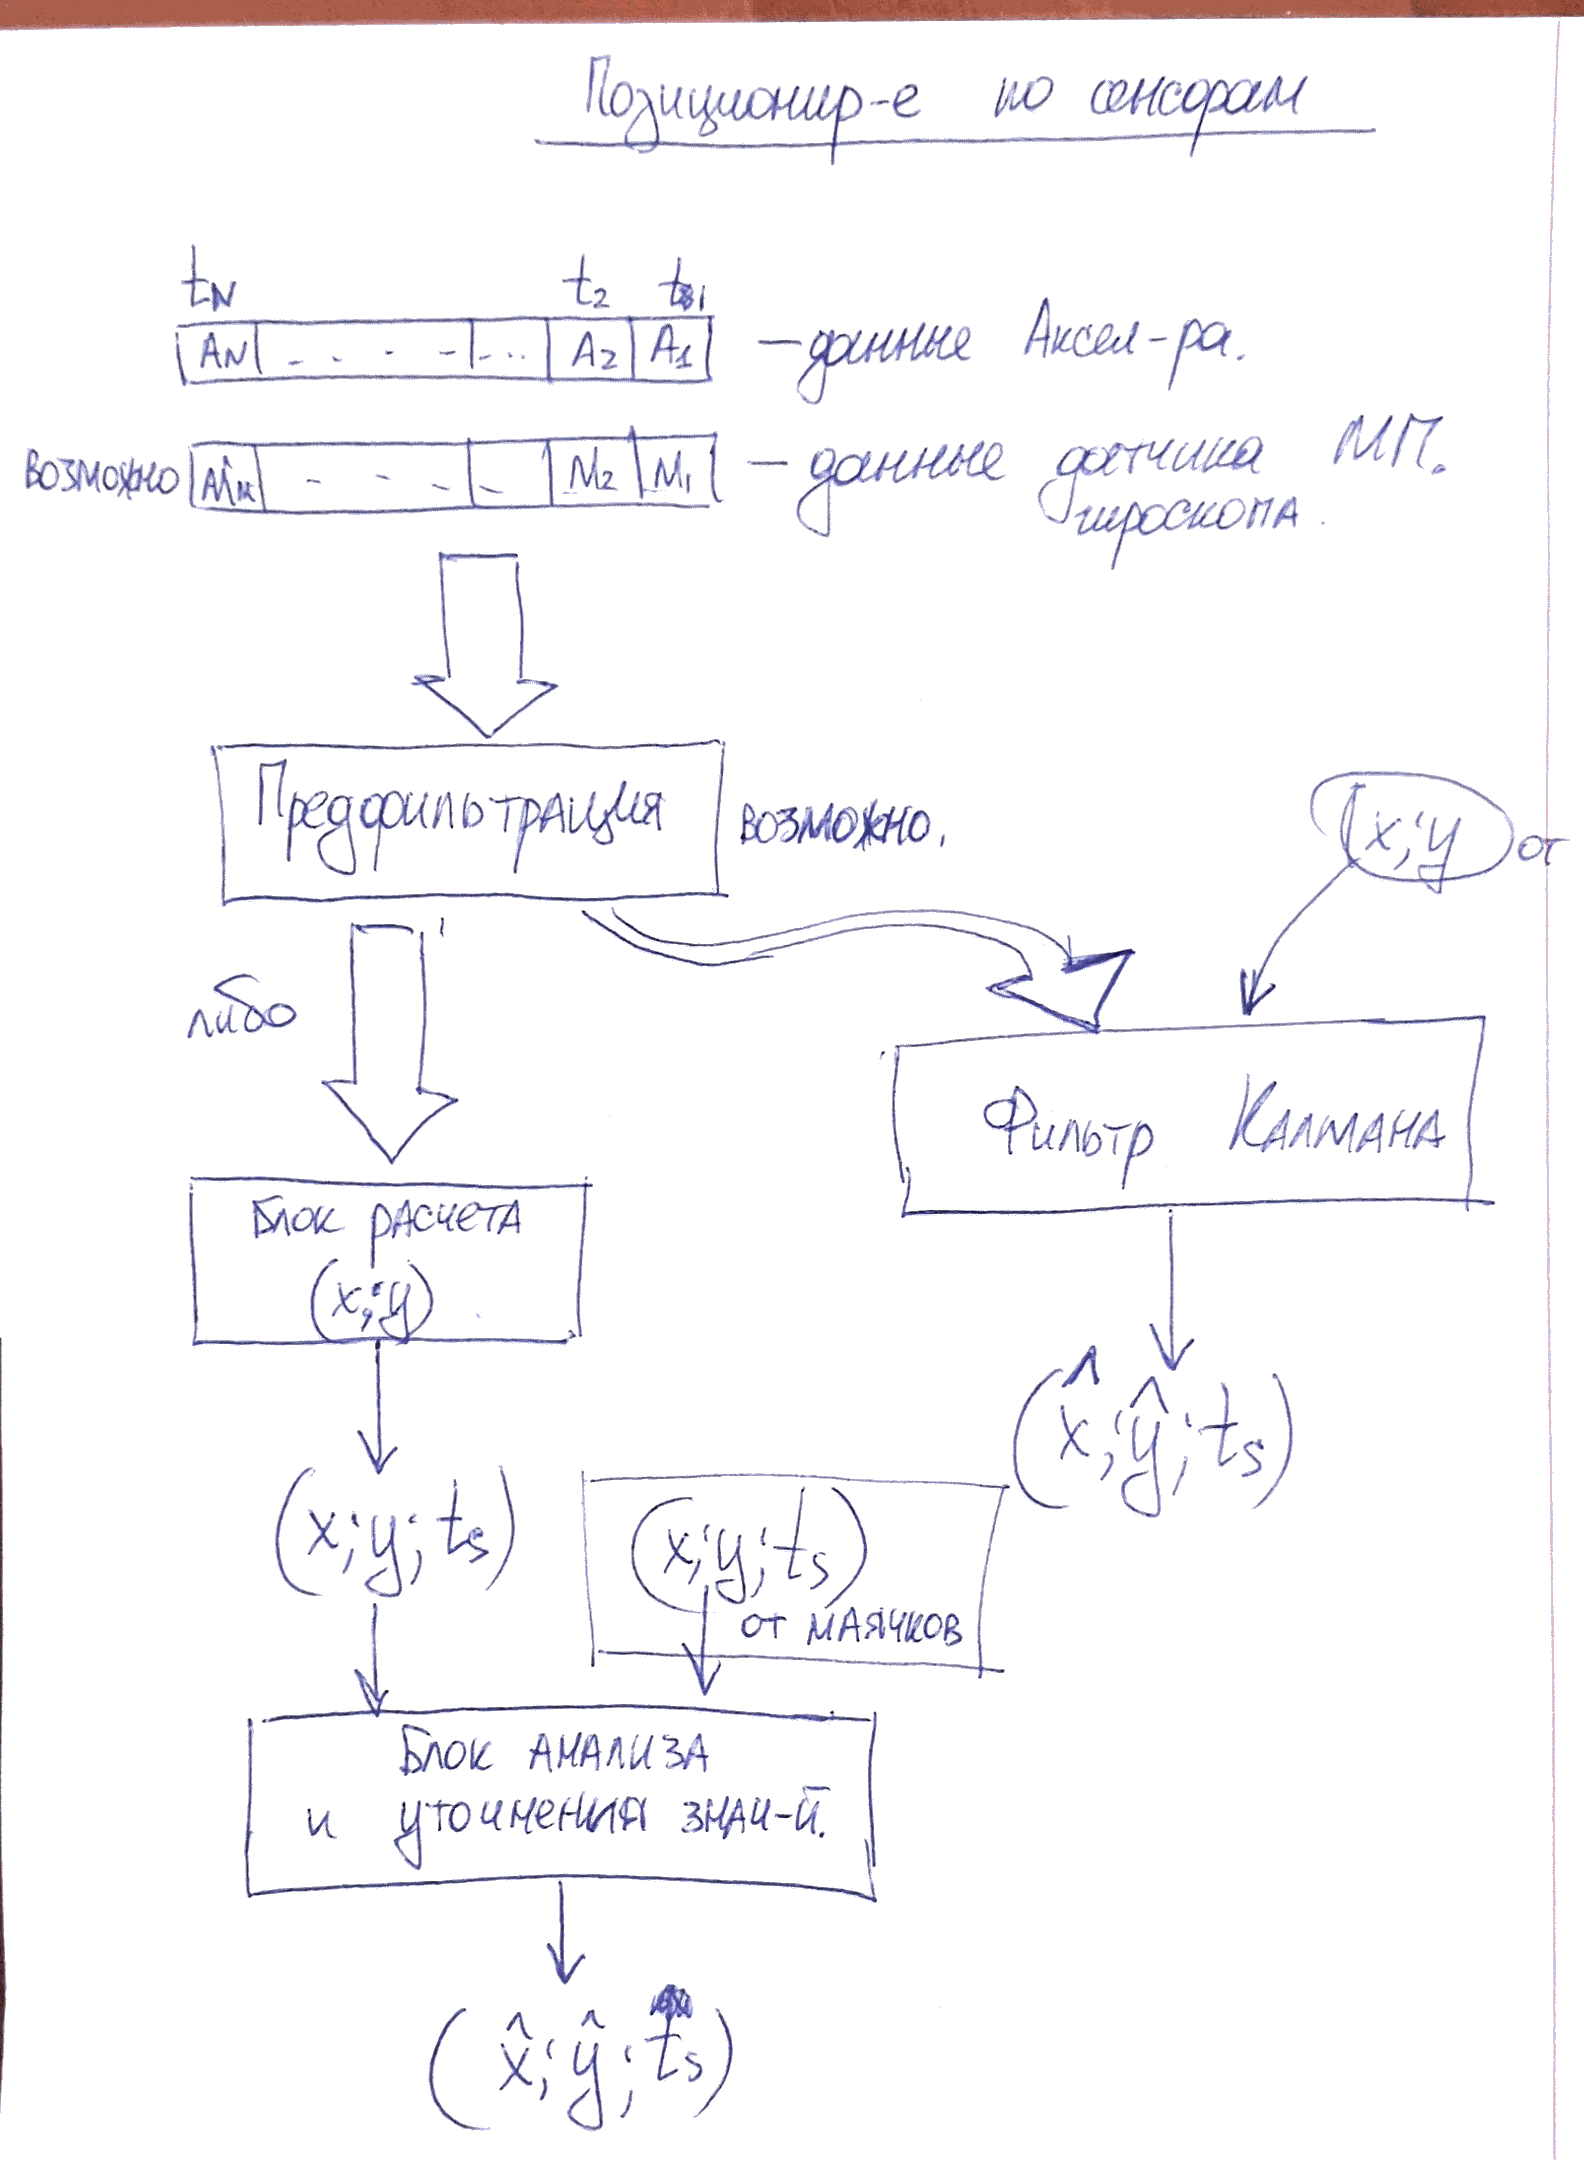 Позиционир-е по сенсорам
tN t2 t1
AN - - - - -... A2 A1 — данные Аксел-ра.
возможно - - - - M2 M1 — данные датчика МП.
гироскопа.
Предфильтрация возможно.
(x;y от
либо
Фильтр Калмана
Блок расчета
(x;y)
(x̂;ŷ;ts)
(x;y;ts) (x;y;ts)
от маячков
Блок анализа
и уточнения знач-й.
(x̂;ŷ;ts)